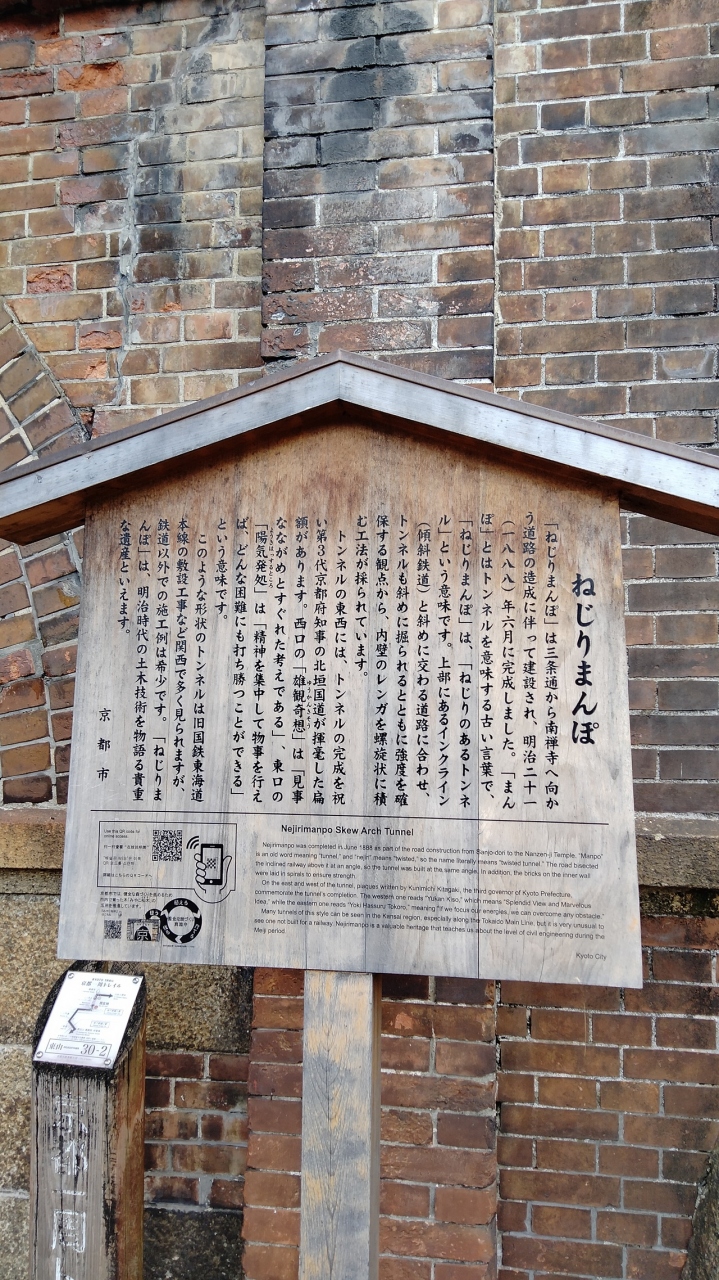 ねじりまんぽ
「ねじりまんぽ」は三条通から南禅寺へ向か
う道路の造成に伴って建設され、明治二十一
（一八八八）年六月に完成しました。「まん
ぽ」とはトンネルを意味する古い言葉で、
「ねじりまんぽ」は、「ねじりのあるトンネ
ル」という意味です。上部にあるインクライン
（傾斜鉄道）と斜めに交わる道路に合わせ、
トンネルも斜めに掘られるとともに強度を確
保する観点から、内壁のレンガを螺旋状に積
む工法が採られています。
トンネルの東西には、トンネルの完成を祝
い第３代京都府知事の北垣国道が揮毫した扁
額があります。西口の「雄観奇想」は「見事
なながめとすぐれた考えである」、東口の
「陽気発処」は「精神を集中して物事を行え
ば、どんな困難にも打ち勝つことができる」
という意味です。
このような形状のトンネルは旧国鉄東海道
本線の敷設工事など関西で多く見られますが、
鉄道以外での施工例は希少です。「ねじりま
んぽ」は、明治時代の土木技術を物語る貴重
な遺産といえます。
京都市
Nejirimanpo Skew Arch Tunnel
Nejirimanpo was completed in June 1888 as part of the road construction from Sanjo-dori to the Nanzen-ji Temple. "Manpo"
is an old word meaning "tunnel," and "nejiri" means "twisted," so the name literally means "twisted tunnel." The road bisected
the inclined railway above it at an angle, so the tunnel was built at the same angle. In addition, the bricks on the inner wall
were laid in spirals to ensure strength.
On the east and west of the tunnel, plaques written by Kunimichi Kitagaki, the third governor of Kyoto Prefecture,
commemorate the tunnel's completion. The western one reads "Yukan Kiso," which means "Splendid View and Marvelous
Idea," while the eastern one reads "Yoki Hassuru Tokoro," meaning "If we focus our energies, we can overcome any obstacle."
Many tunnels of this style can be seen in the Kansai region, especially along the Tokaido Main Line, but it is very unusual to
see one not built for a railway. Nejirimanpo is a valuable heritage that teaches us about the level of civil engineering during the
Meiji period.
Kyoto City
Use this QR code for
online access.
東山
30-2